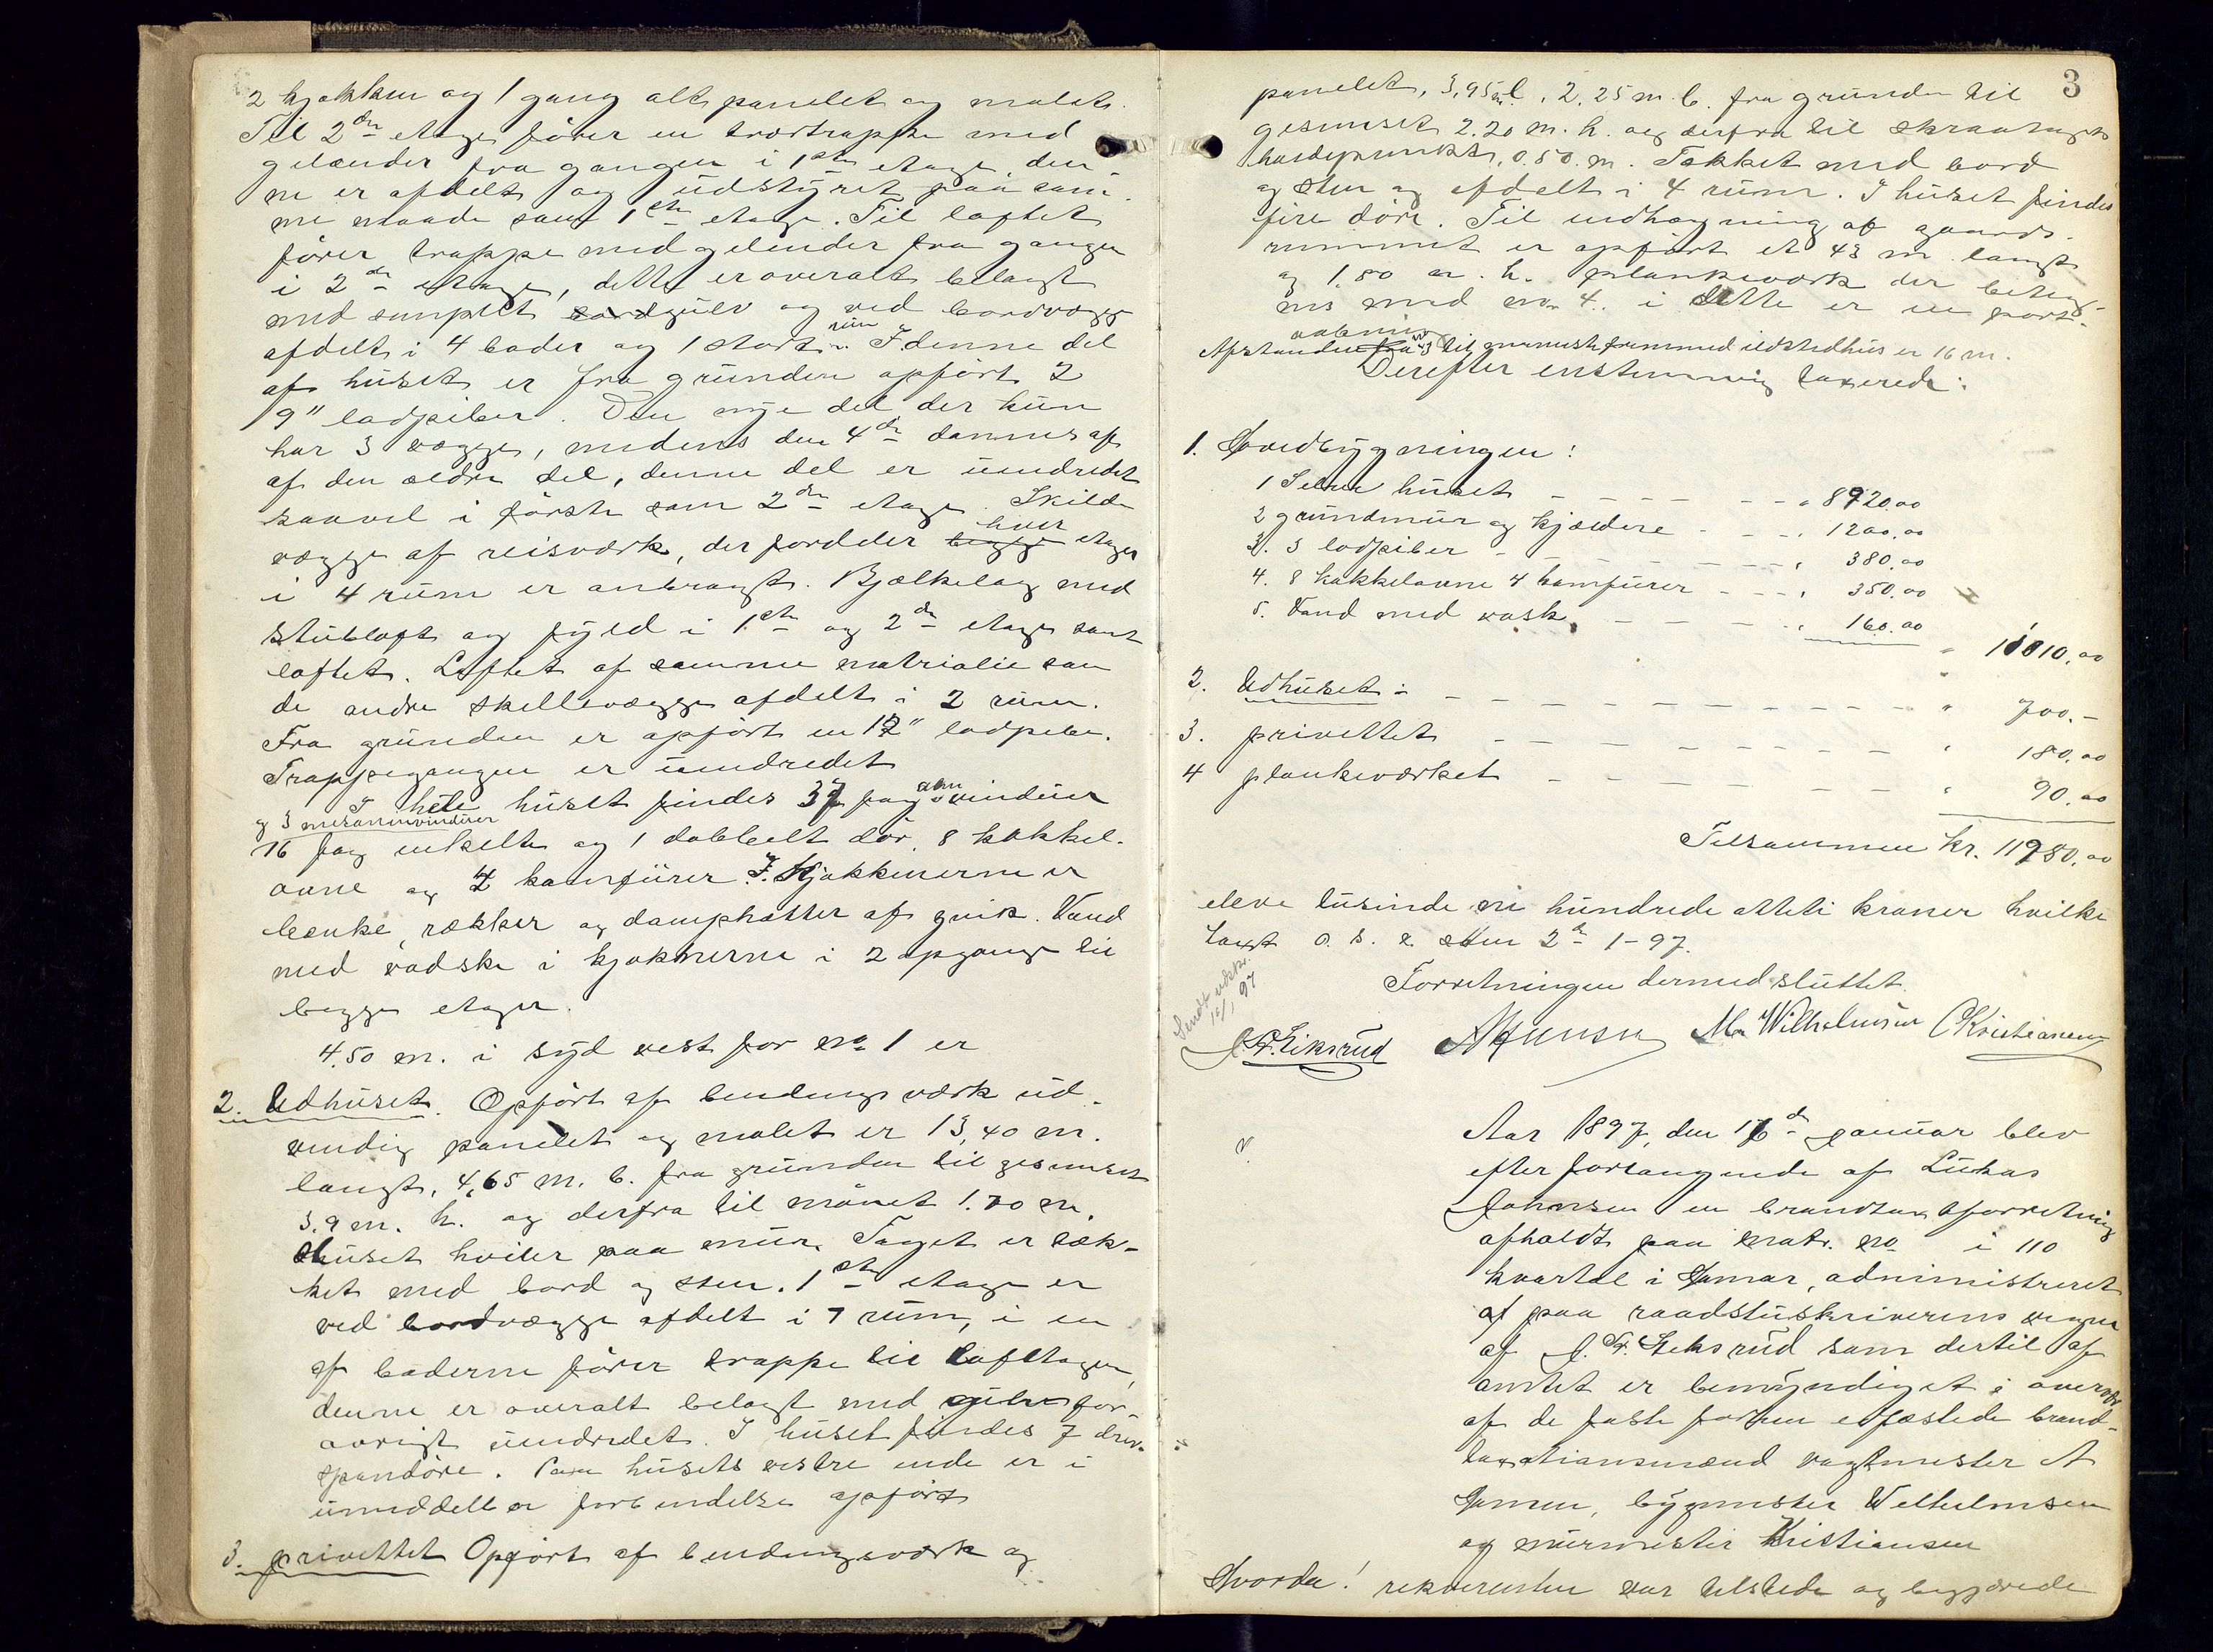 2 kjøkken og 1 gang alt panelet og malet.
Til 2den etage fører en trætrappe med
gelænder fra gangen i 1ste etage, den-
ne er afdelt og udstyret paa sam-
me maade som 1ste etage. Til loftet
fører trappe med gelender fra gangen
i 2den etage, dette er overalt belagt
med simplet bordgulv og ved bordvægge
afdelt i 4 boder og 1 stort rum. I denne del
af huset er fra grunden opført 2
9" lodpiber. Den nye del der kun
har 3 vægge, medens den 4de dannes af
af den ældre del, denne del er uindredet
saavel i første som 2den etage. Skilde
vægge af reisværk, der fordeler begge hver etage
i 4 rum er anbragt. Bjælkelag med
stubloft og fyld i 1ste og 2den etage samt
loftet. Loftet af samme matrialie som
de andre skellevægge afdelt i 2 rum.
Fra grunden er opført en 12" lodpibe.
Trappegangen er uindredet
I hele huset findes 37 fag alm vinduer
og 3 mesaninvinduer
16 fag enkelte og 1 dobbelt dør, 8 kakkel-
ovne og 4 komfurer. I kjøkkenerne er
benke, rækker og damphatter af zink. Vand
med vadske i kjøknerne i 2 opgange til
begge etager.
4.50 m. i syd vest for no 1 er
2. Udhuset. Opført af bendings værk ud-
vendig panelet og malet er 13,40 m.
langt, 4,65 m. b. fra grunden til gesimset
3.9 m. h. og derfra til mønet 1.70 m.
Huset hviler paa mur. Taget er tæk-
ket med bord og sten. 1ste etage er
ved bordvægge afdelt i 7 rum, i en
af boderne fører trappe til loftetagen,
denne er overalt belagt med gulv for-
øvrigt uindredet. I huset findes 7
døre. Paa husets vestre ende er i
umiddelbar forbindelse opført
3. privettet Opført af bendingsværk og
3
panelet, 3,95 m l. 2.25 m. b. fra grunden til
gesimset 2.20 m. h. og derfra til skraatagets
høidepunkt, 0.50. m. Tækket med bord
og sten og afdelt i 4 rum. I huset findes
fire døre. Til indhægning af gaards-
rummet er opført et 43 m. langt
og 1.80 m. h. plankeværk der beteg-
nes med no 4. i dette er en port-
aabning
Afstanden fra no 3 til nærmeste fremmed ildstedhus er 16 m.
Derefter enstemmig taxerede:
1. Hovedbygningen:
1 Selve huset - - - - - - " 8720.00
2 grundmur og kjældere - - - " 1200.00
3. 3 lodpiber - - - - - - " 380.00
4. 8 kakkelovne 4 komfurer - - - " 350.00
5. Vand med vask - - - - - " 160.00
" 10810.00
2. Udhuset - - - - - - - - - " 700.-
3. privettet - - - - - - - - " 180.00
4 plankeværket - - - - - - - " 90.00
Tilsammen kr. 11780.00
eleve tusinde ni hundrede otteti kroner hvilke
taxt o. s. v. 2de 1-97.
Forretningen dermed sluttet.
Sendt udskr.
16/1 97
Eiksrud A Hansen M. Wilhelmsen C Kristiansen
Aar 1897, den 16de januar blev
efter forlangende af Lukas
Johnsen en brandtaxtforretning
afholdt paa matr. no i 110
kvartal i Hamar, administreret
af paa raadstuskriverens vegne
af Eeksrud som dertil af
amtet er bemyndiget i overvær
af de faste edfæstede brand-
taxtionsmænd vagtmester A
Hansen, bygmester Wilhelmsen
og murmester Kristiansen
Hvorda! rekvirenten var tilstede og begjærede